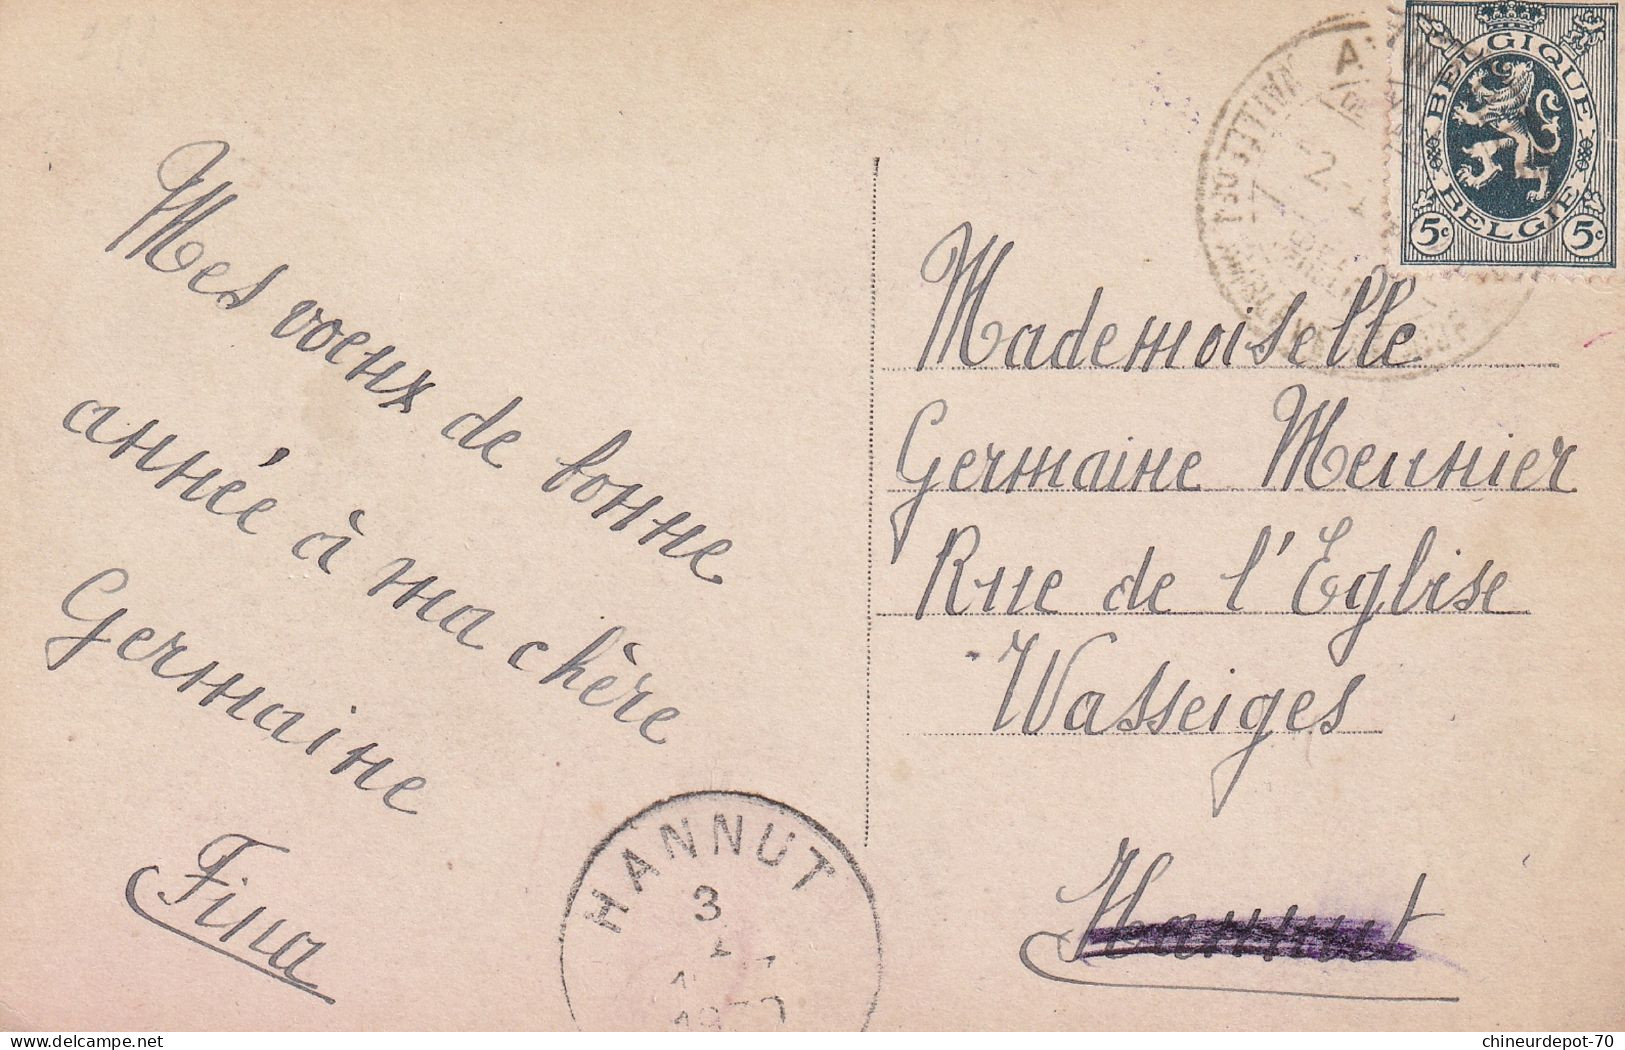 Mes voeux de bonne
année à ma chère
Germaine
Fina
BELGIQUE
BELGIE
5c 5c
Mademoiselle
Germaine Meunier
Rue de l'Eglise
Wasseiges
Hannut
HANNUT
3
delcampe.net
chineurdepot-70